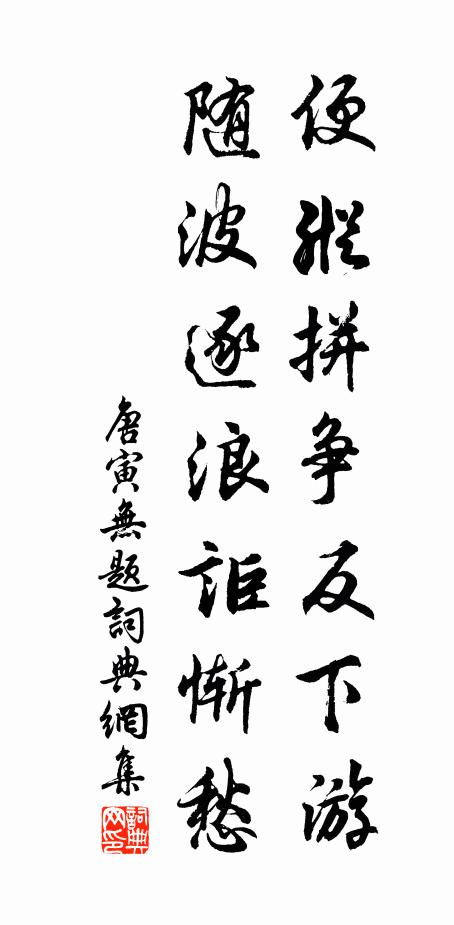 便縱拼争反下游
随波逐浪詎慚愁
唐寅無題詞典網集
詞典网印